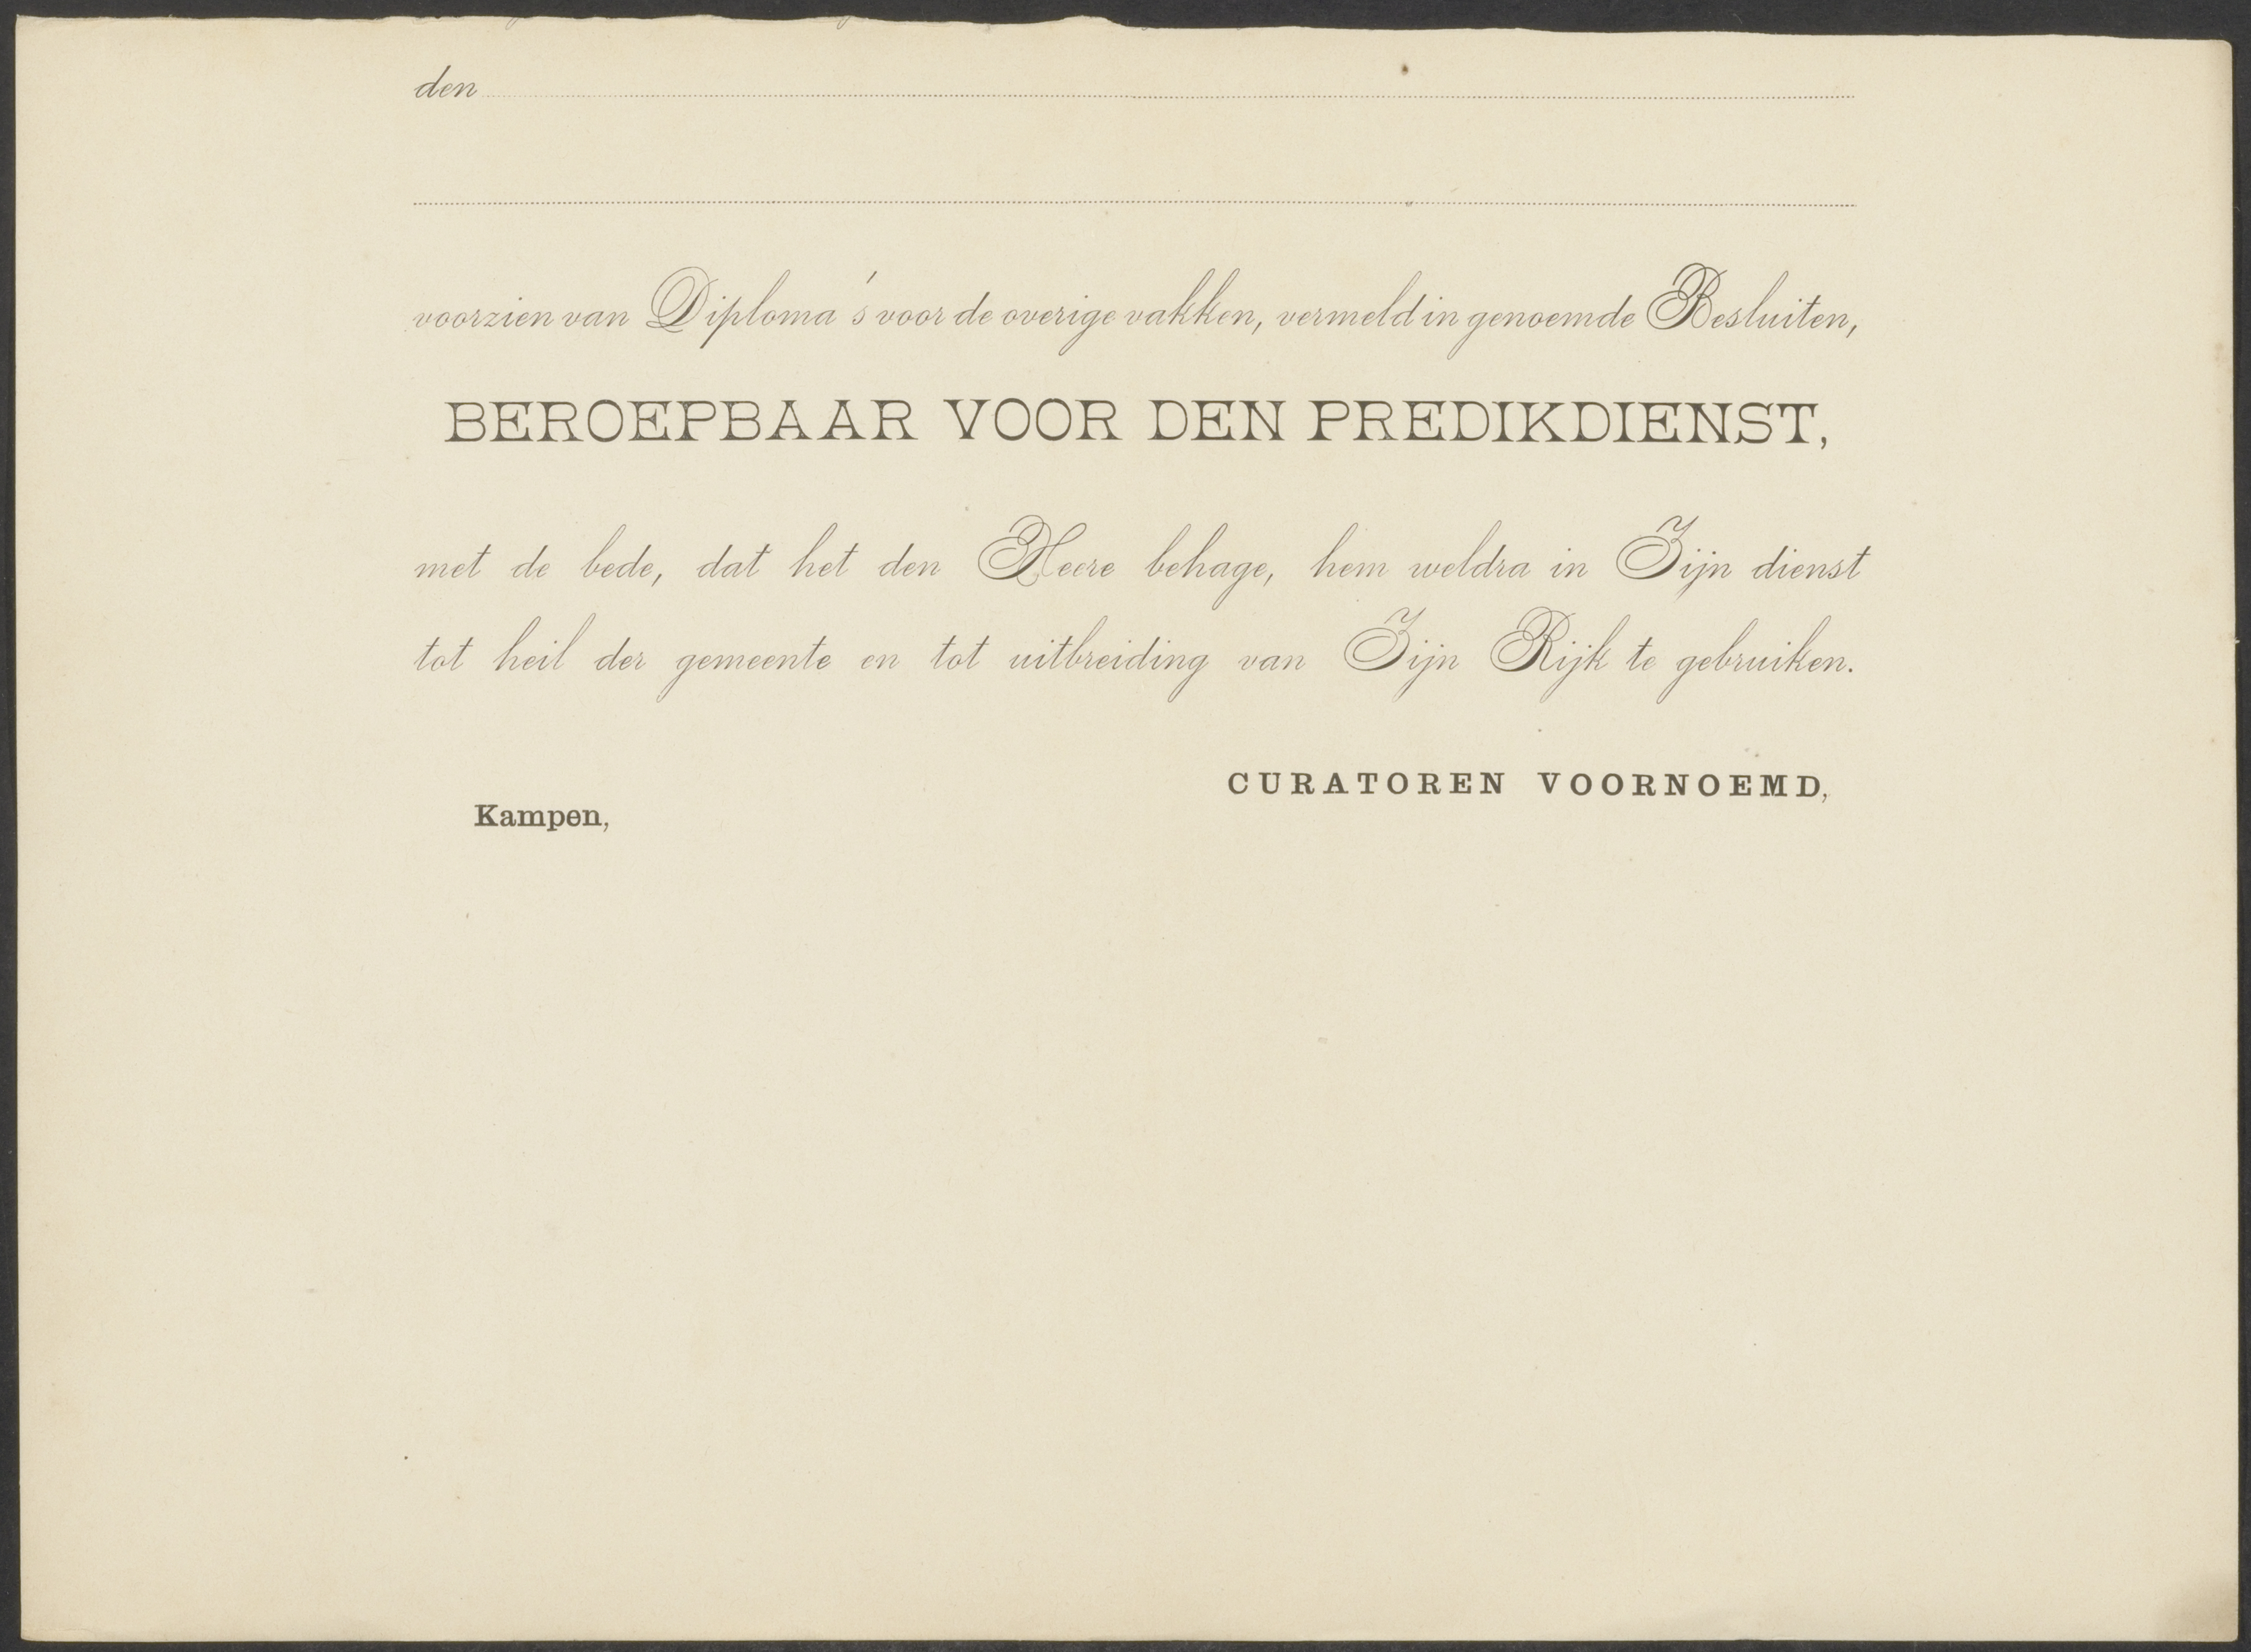 den
voorzien van Diploma's voor de overige vakken, vermeld in genoemde Besluiten,
BEROEPBAAR VOOR DEN PREDIKDIENST,
met de bede, dat het den Heere behage, hem weldra in Zijn dienst
tot heil der gemeente en tot uitbreiding van Zijn Rijk te gebruiken.
CURATOREN VOORNOEMD,
Kampen,